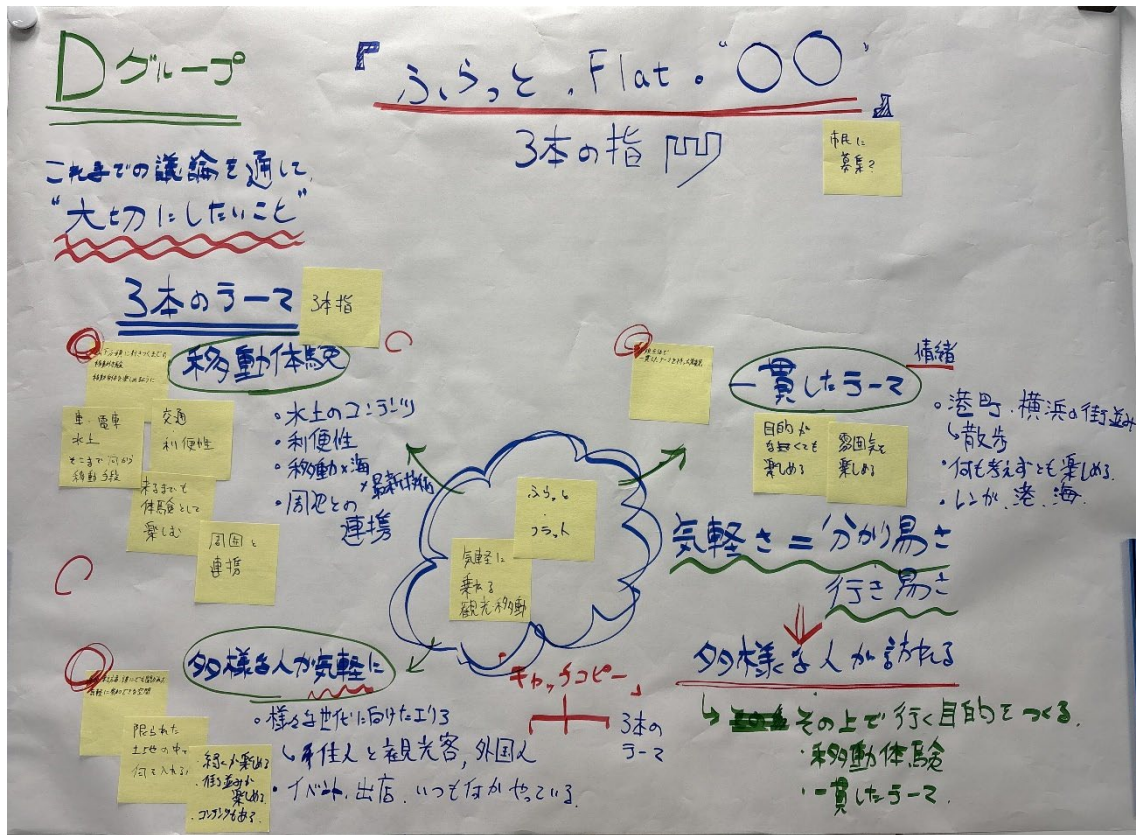 Dグループ
『ふらっと.Flat。"〇〇"』
3本の指
市民に
募集?
これまでの議論を通して、
"大切にしたいこと"
3本のテーマ
3本指
移動体験
車・電車
水上
そこまで何から
移動手段
交通
利便性
来るまでも
体験として
楽しむ
周囲と
連携
・水上のコンテンツ
・利便性
・移動×海
×最新技術
・周辺との
連携
ふらっと
フラット
気軽に
乗れる
観光移動
一貫したテーマ
情緒
目的が
無くても
楽しめる
雰囲気を
楽しめる
・港町、横浜の街並み
↳散歩
・何も考えずとも楽しめる.
・レンガ、港、海
気軽さ=分かり易さ
行き易さ
多様な人が訪れる
↳その上で行く目的をつくる.
・移動体験
・一貫したテーマ.
多様な人が気軽に
限られた
土地の中で
何を入れる?
・緑が楽しめる
・街並みが
楽しめる
・コンテンツもある.
・様々な世代に向けたエリア
↳住人と観光客,外国人
・イベント、出店、いつもなにかやっている.
「キャッチコピー」
3本の
テーマ